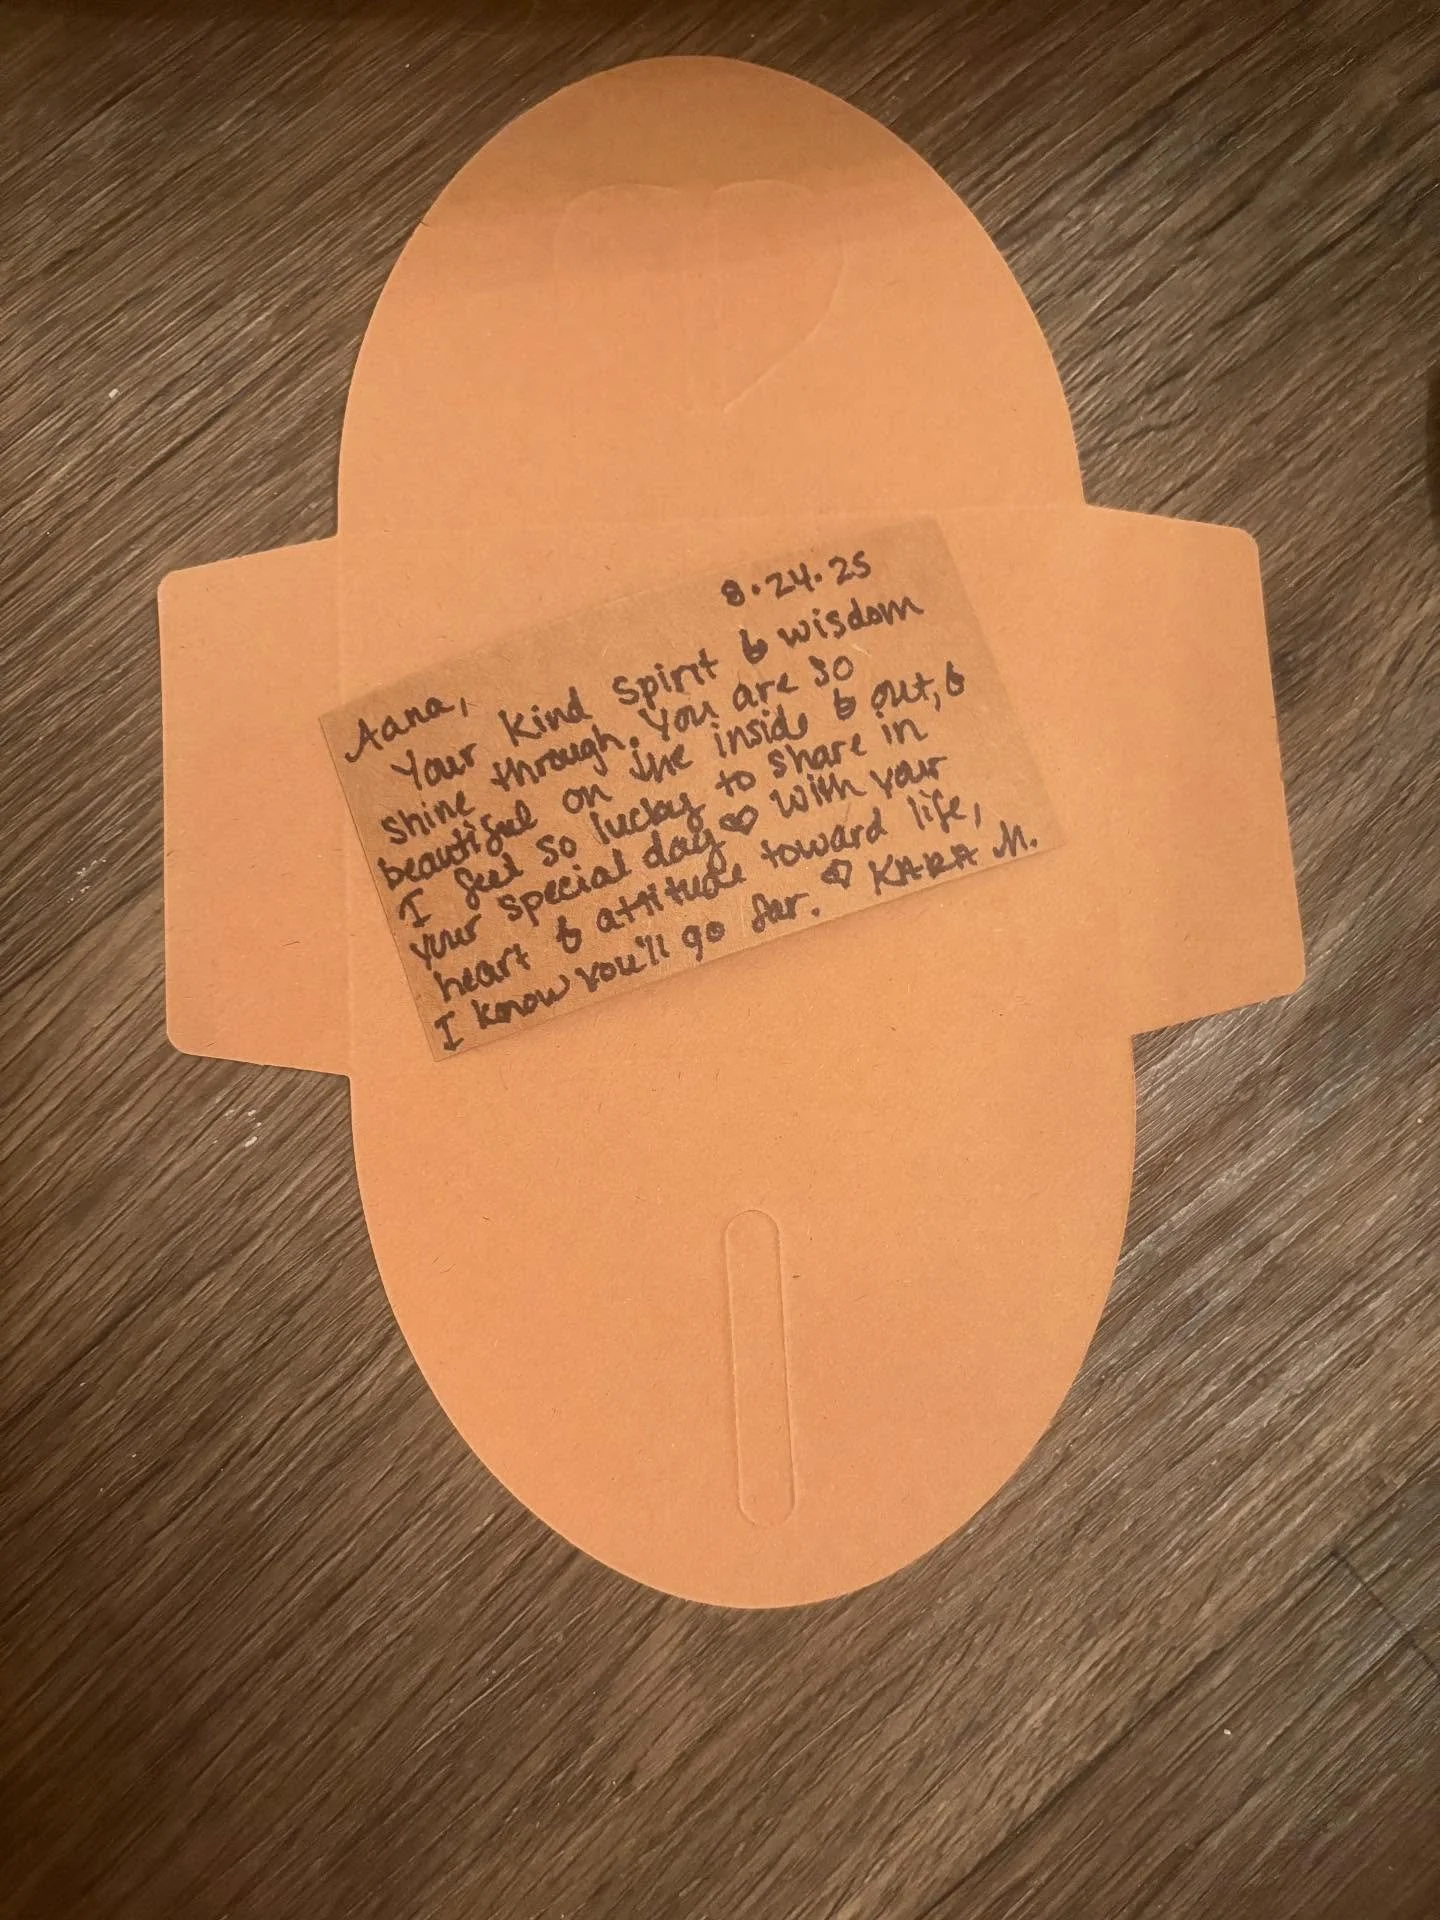 8.24.25
Aana,
Your kind spirit & wisdom
shine through. You are so
beautiful on the inside & out, &
I feel so lucky to share in
your special day ♡ With your
heart & attitude toward life,
I know you'll go far. ♡ KARA M.